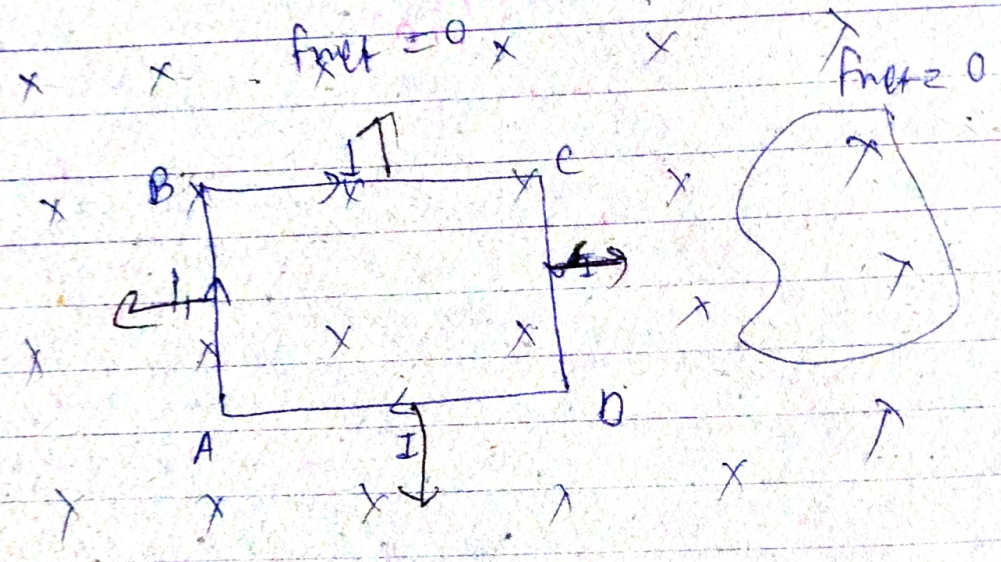 Fnet = 0
Fnet = 0
B
I
C
I
I
A
I
D